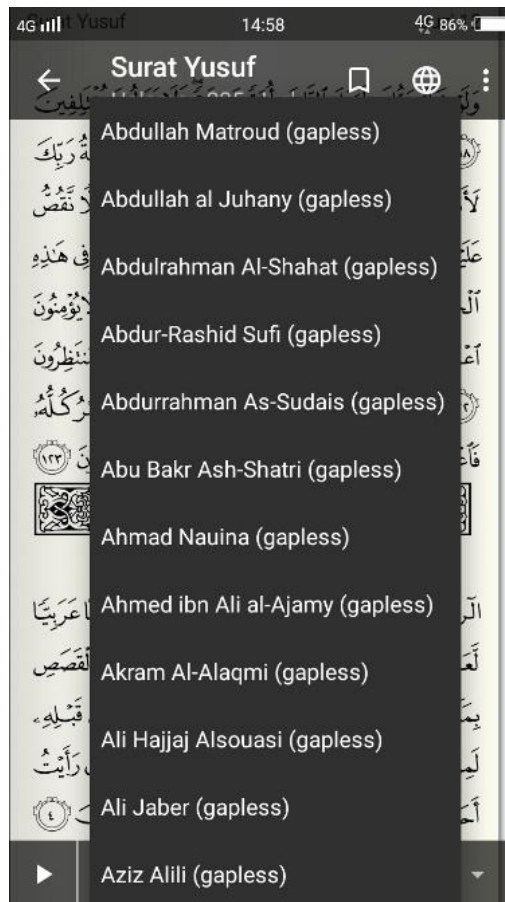 4G 14:58 4G 86%
Surat Yusuf
Abdullah Matroud (gapless)
ةُ رَبِّكَ
Abdullah al Juhany (gapless)
نَّقُصُّ
Abdulrahman Al-Shahat (gapless)
فِى هَٰذِهِ
لَا يُؤْمِنُونَ
Abdur-Rashid Sufi (gapless)
Abdurrahman As-Sudais (gapless)
كُلُّهُۥ
Abu Bakr Ash-Shatri (gapless)
١٢٣
Ahmad Nauina (gapless)
Ahmed ibn Ali al-Ajamy (gapless)
الٓر
عَرَبِيًّا
Akram Al-Alaqmi (gapless)
ٱلْقَصَصِ
قَبْلِهِۦ
Ali Hajjaj Alsouasi (gapless)
رَأَيْتُ
Ali Jaber (gapless)
٤
Aziz Alili (gapless)